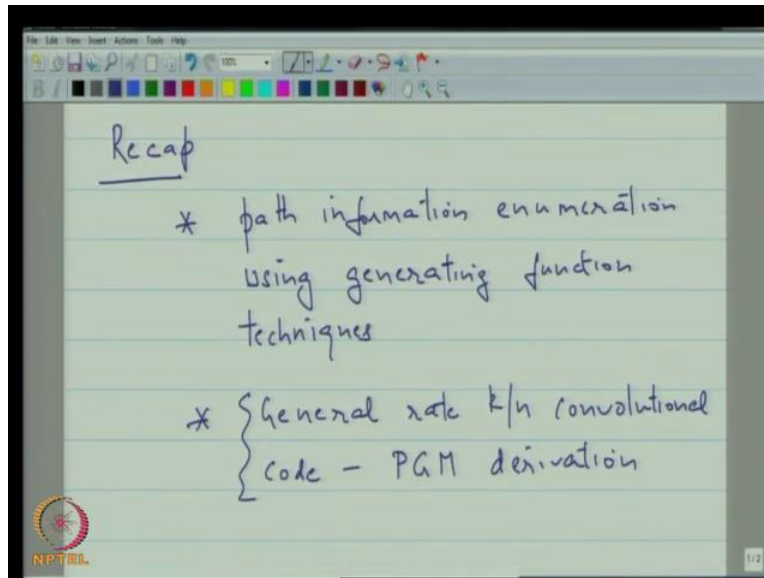 File Edit View Insert Actions Tools Help
100%
B I
Recap
* path information enumeration
using generating function
techniques
* { General rate k/n convolutional
code - PGM derivation
NPTEL
1/2